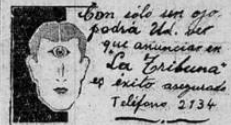 Con sólo un ojo
podrá Ud. ver
que anunciar en
"La Tribuna"
es éxito asegurado
Teléfono, 2134